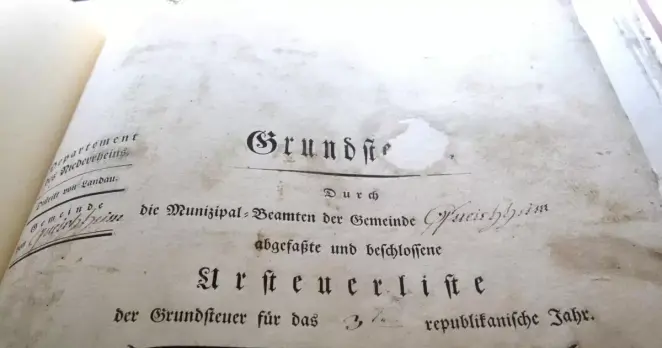 Departement
des Niederrheins,
Distrikt von Landau.
Gemeinde
Queichheim
Grundste
Durch
die Munizipal-Beamten der Gemeinde Queichheim
abgefaßte und beschlossene
Ursteuerliste
der Grundsteuer für das 3te republikanische Jahr.